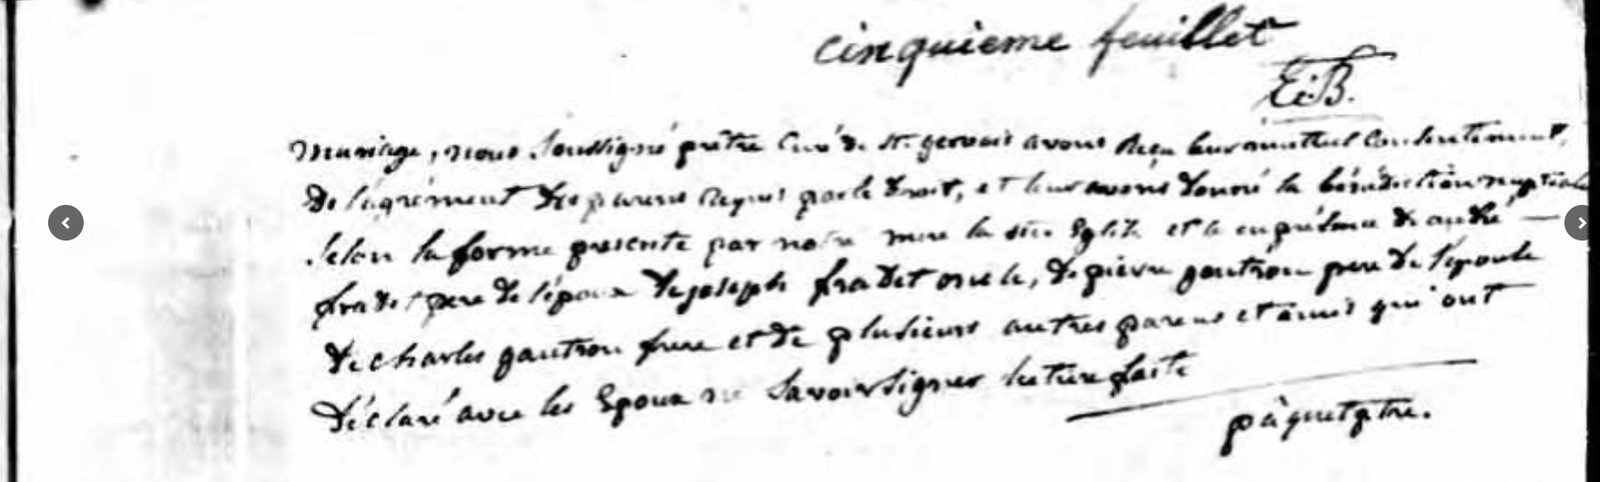 cinquieme feuillet
E:B.
mariage, nous soussigné prêtre Curé de St. gervais avons Reçu leur mutuel Consentement,
De l'agrément des parens Requis par le Droit, et leur avons donné la bénédiction nuptiale
selon la forme prescrite par notre mere la ste. Eglise et ce en présence de andré
fradet pere de l'époux De joseph fradet oncle, De pierre gautron pere De l'épouse
De charles gautron frere et De plusieurs autres parens et amis qui ont
Déclaré avec les Epoux ne savoir signer lecture faite
pâquet ptre.